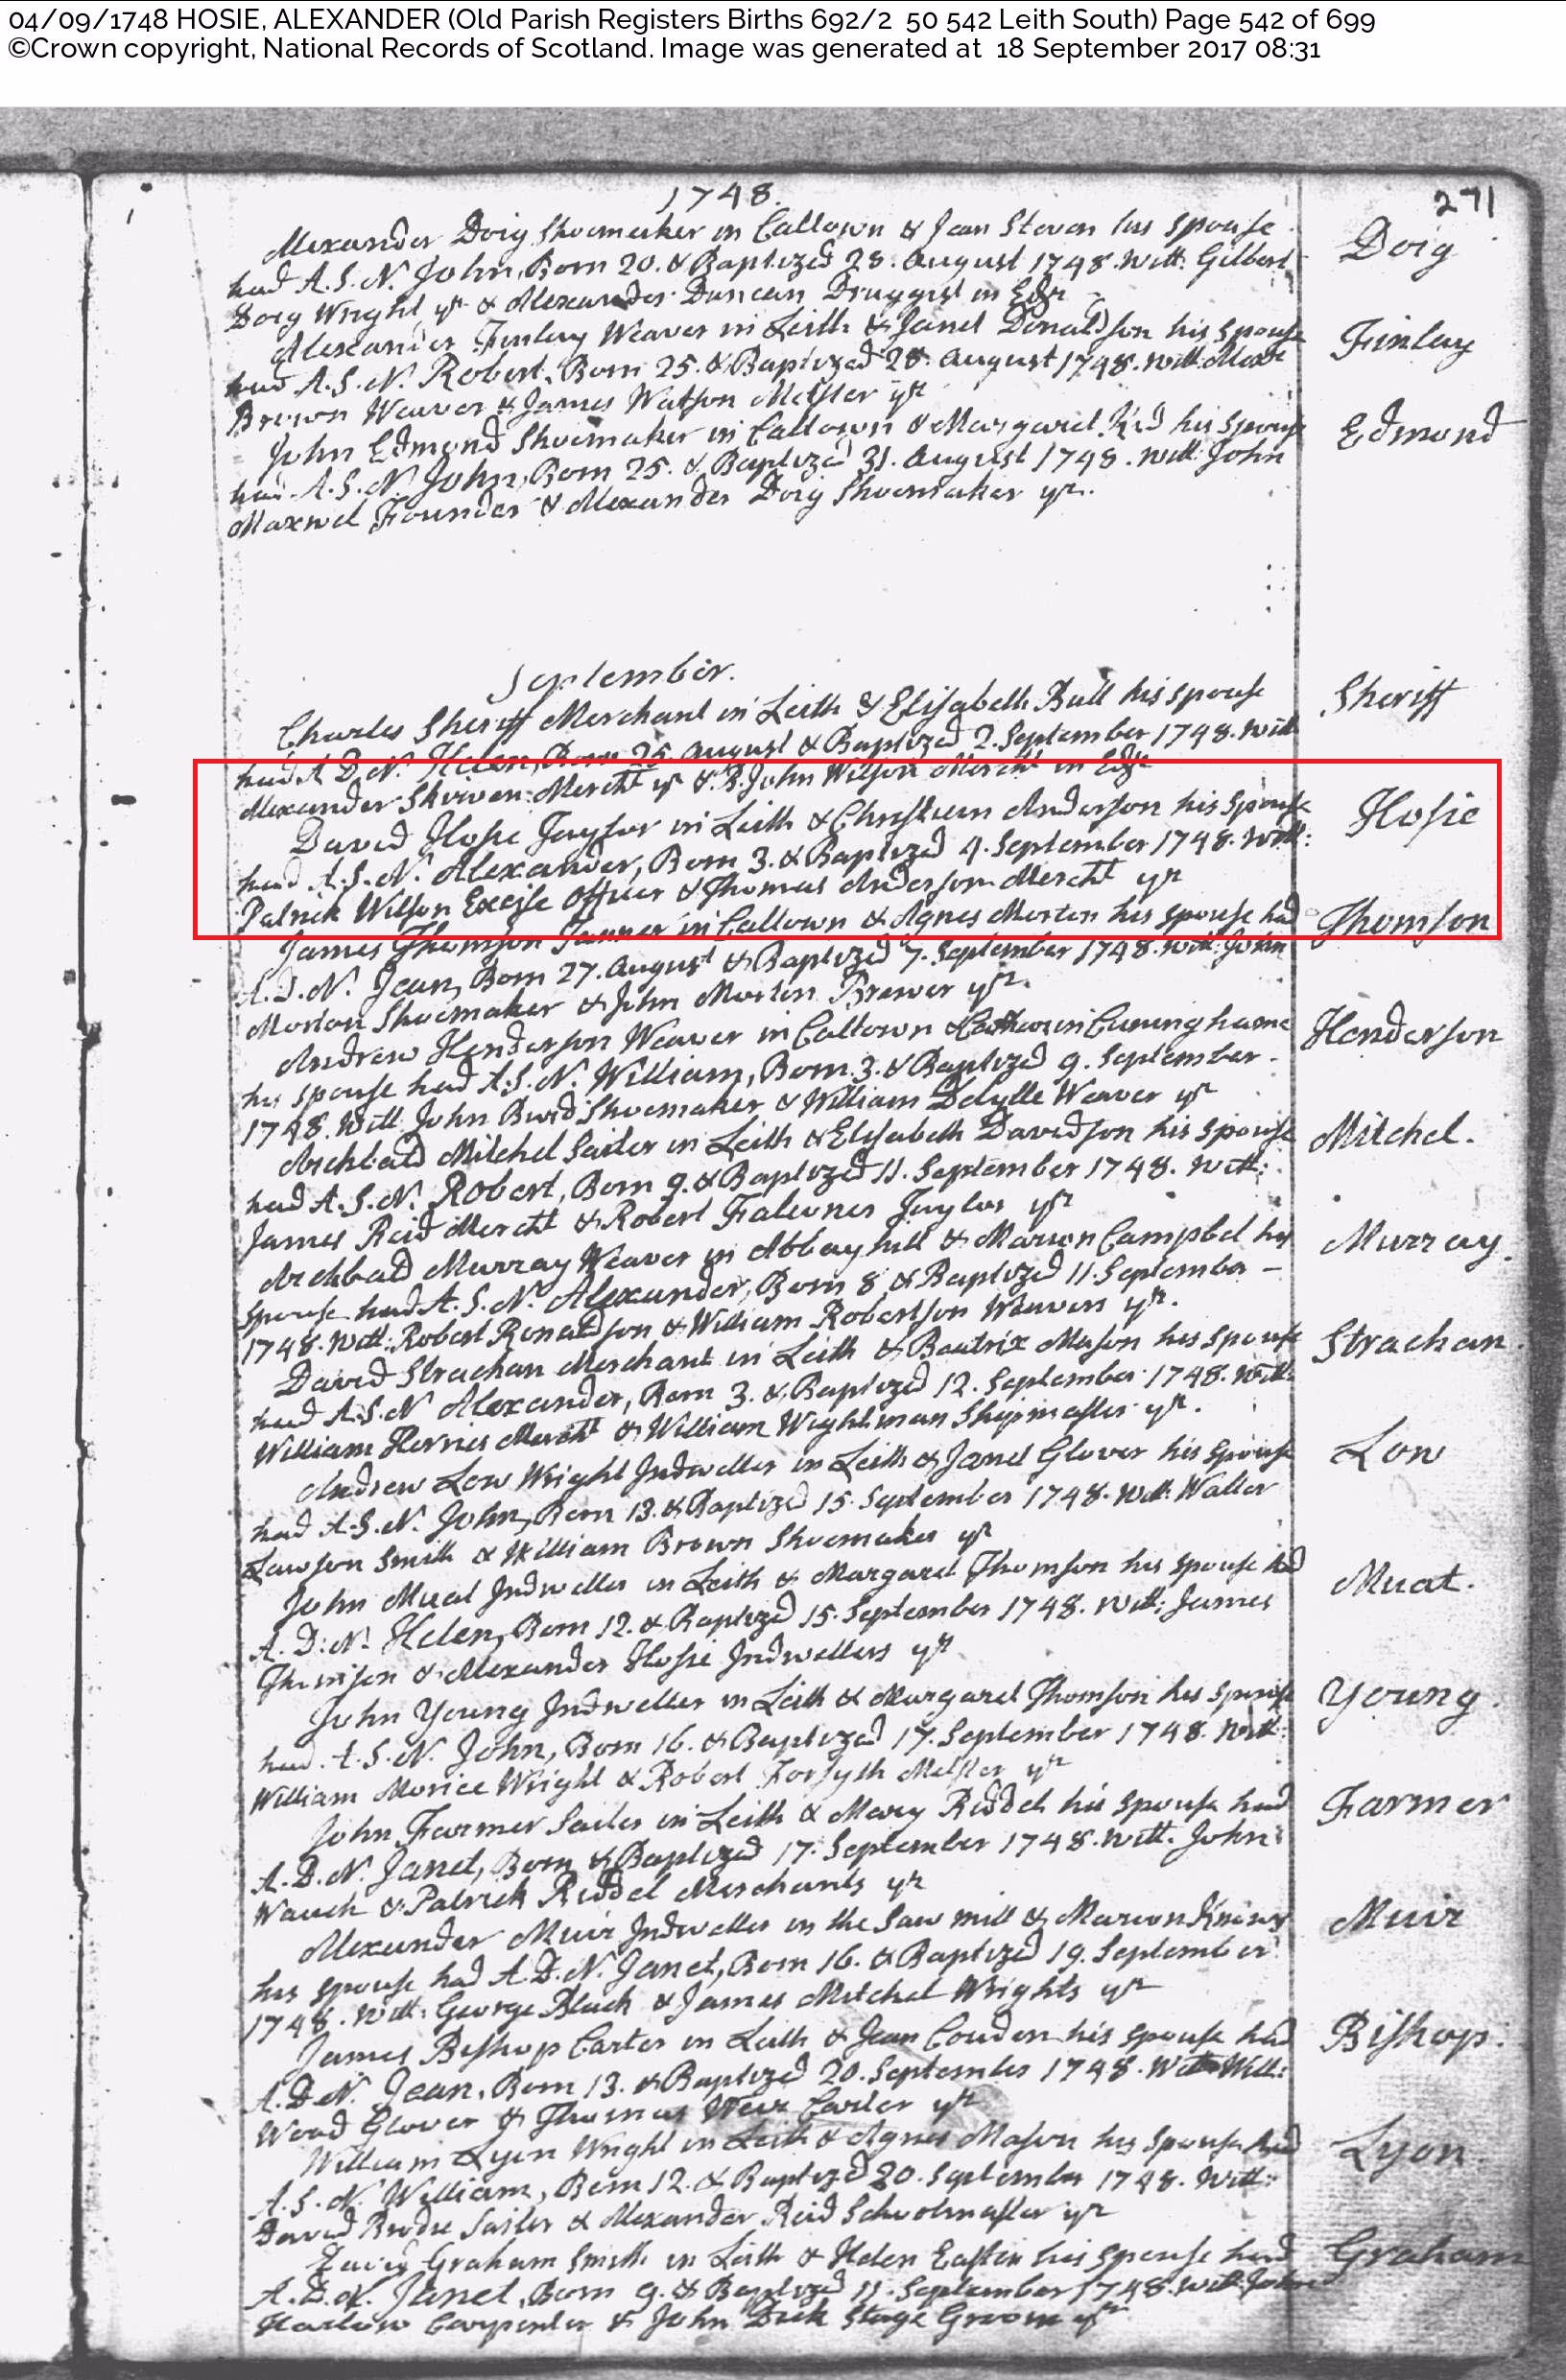 04/09/1748 HOSIE, ALEXANDER (Old Parish Registers Births 692/2 50 542 Leith South) Page 542 of 699
©Crown copyright, National Records of Scotland. Image was generated at 18 September 2017 08:31
1748.
271
Alexander Doig Shoemaker in Caltown & Jean Steven his Spouse
Doig
had A.S.N. John, Born 20. & Baptized 28. August 1748. Witt: Gilbert
Doig Wright yr & Alexander Duncan Druggist in Edr
Alexander Finlay Weaver in Leith & Janet Donaldson his Spouse
Finlay
had A.S.N. Robert, Born 25. & Baptized 28. August 1748. Witt: Alexr
Brown Weaver & James Watson Meltster yr
John Edmond Shoemaker in Caltown & Margaret Kid his Spouse
Edmond
had A.S.N. John, Born 25. & Baptized 31. August 1748. Witt: John
Maxwel Founder & Alexander Doig Shoemaker yr.
September.
Charles Sheriff Merchant in Leith & Elisabeth Bull his spouse
Sheriff
had A D. N. Helen, Born 25. August & Baptized 2. September 1748. Witt
Alexander Merctt yr & John Wilson Merctt in Edr
David Hosie Taylor in Leith & Christian Anderson his Spouse
Hosie
had A.S.N. Alexander, Born 3. & Baptized 4. September 1748. Witt:
Patrick Wilson Excise Officer & Thomas Anderson Merctt yr
James Thomson Tanner in Caltown & Agnes Morton his spouse had
Thomson
A.D.N. Jean, Born 27. August & Baptized 7. September 1748. Witt: John
Morton Shoemaker & John Morton Brewer yr.
Andrew Henderson Weaver in Caltown & Cuninghame
Henderson
his spouse had A.S.N. William, Born 3. & Baptized 9. September
1748. Witt John Shoemaker & William Weaver yr
Archbald Mitchel Sailer in Leith & Elisabeth Davidson his spouse
Mitchel.
had A.S.N. Robert, Born 9. & Baptized 11. September 1748. Witt:
James Reid Merctt & Robert Falconer Taylor yr
Archbald Murray Weaver in Abbayhill & Marion Campbel his
Murray
spouse had A.S.N. Alexander, Born 8 & Baptized 11. September
1748. Witt: Robert Ronaldson & William Robertson Weavers yr.
David Strachan Merchant in Leith & Beatrix Mason his Spouse
Strachan
had A.S.N Alexander, Born 3. & Baptized 12. September 1748. Witt:
William Herries Merctt & William Wightman Shipmaster yr.
Andrew Low Wright Indweller in Leith & Janet Glover his Spouse
Low
had A.S.N. John, Born 13. & Baptized 15. September 1748. Witt: Walter
Lawson Smith & William Brown Shoemaker yr
John Muat Indweller in Leith & Margaret Thomson his Spouse had
Muat.
A.D.N. Helen, Born 12. & Baptized 15. September 1748. Witt: James
Thomson & Alexander Hosie Indwellers yr
John Young Indweller in Leith & Margaret Thomson his spouse
Young.
had A.S.N. John, Born 16. & Baptized 17. September 1748. Witt:
William Morice Wright & Robert Forsyth Meltster yr
John Farmer Sailer in Leith & Mary Riddel his Spouse had
Farmer
A.D.N. Janet, Born & Baptized 17. September 1748. Witt. John
Wauch & Patrick Riddel Merchants yr
Alexander Muir Indweller in the Saw mill & Marion his
Muir
his spouse had A.D.N. Janet, Born 16. & Baptized 19. September
1748. Witt: George Black & James Mitchel Wrights yr
James Bishop Carter in Leith & Jean Couden his spouse had
Bishop.
A.D.N. Jean, Born 13. & Baptized 20. September 1748. Witt Will:
Wood Glover & Thomas Weir Carter yr
William Lyon Wright in Leith & Agnes Mason his Spouse had
Lyon
A.S.N. William, Born 12. & Baptized 20. September 1748. Witt:
David Brodie Sailer & Alexander Reid Schoolmaster yr
David Graham Smith in Leith & Helen his Spouse had
Graham
A.D.N. Janet, Born 9. & Baptized 11. September 1748. Witt:
Harlow Carpenter & John Dick Stage Groom yr